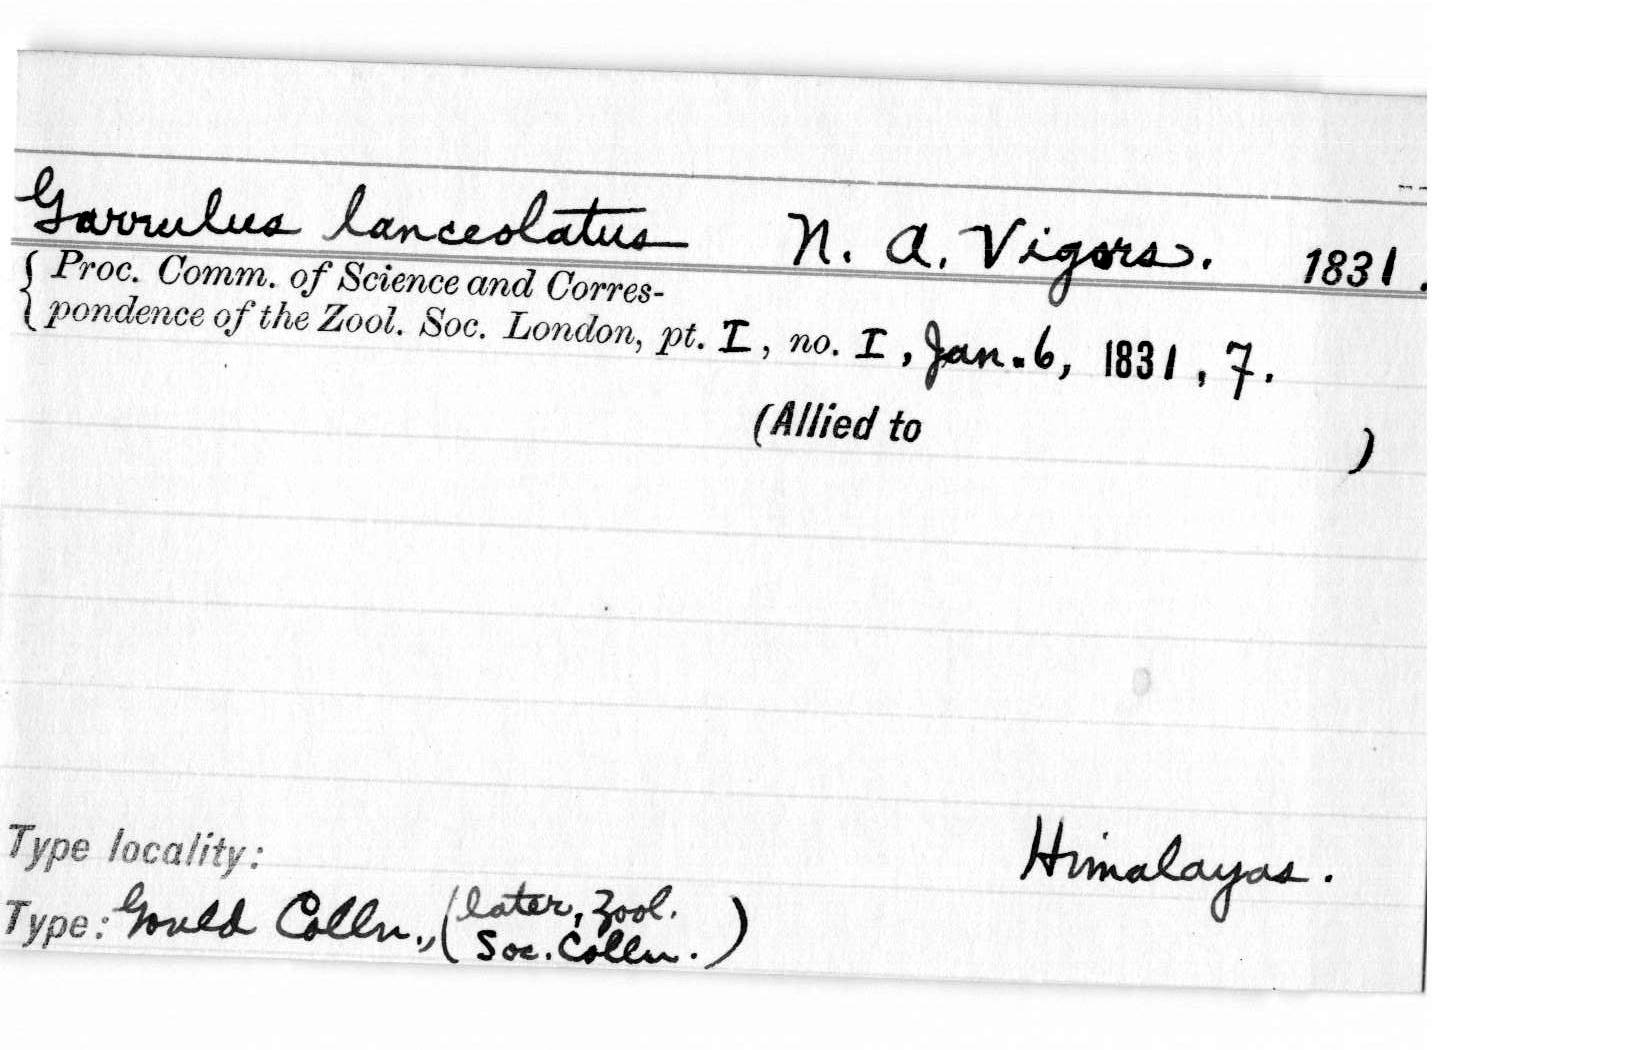 Garrulus lanceolatus N. A. Vigors. 1831.
{ Proc. Comm. of Science and Corres-
pondence of the Zool. Soc. London, pt. I, no. I, Jan. 6, 1831, 7.
(Allied to )
Type locality: Himalayas.
Type: Gould Colln., (later, Zool.
Soc. Colln.)